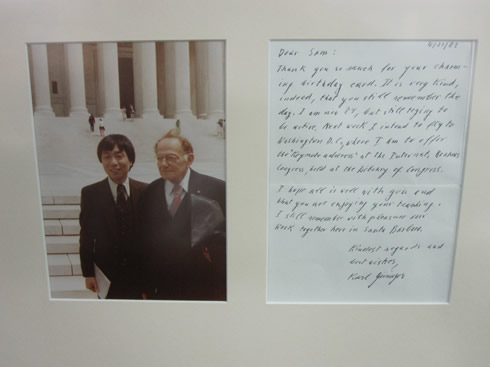 4/27/87
Dear Sam:
Thank you so much for your charm-
ing birthday card. It is very kind,
indeed, that you still remember the
day. I am now 84, but still trying to
be active. Next week I intend to fly to
Washington D.C., where I am to offer
the "Keynote address" at the Internat.
Congress, held at the Library of Congress.
I hope all is well with you and
that you are enjoying your teaching.
I still remember with pleasure our
week together here in Santa Barbara.
Kindest regards and
best wishes,
Karl